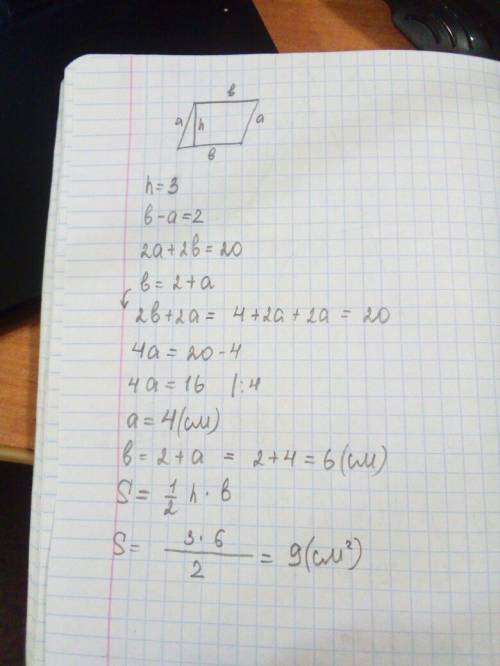 в
a h a
в
h = 3
в - a = 2
2a + 2в = 20
в = 2 + a
2в + 2a = 4 + 2a + 2a = 20
4a = 20 - 4
4a = 16 |:4
a = 4 (см)
в = 2 + a = 2 + 4 = 6 (см)
S = \frac{1}{2} h · в
S = \frac{3 · 6}{2} = 9 (см²)